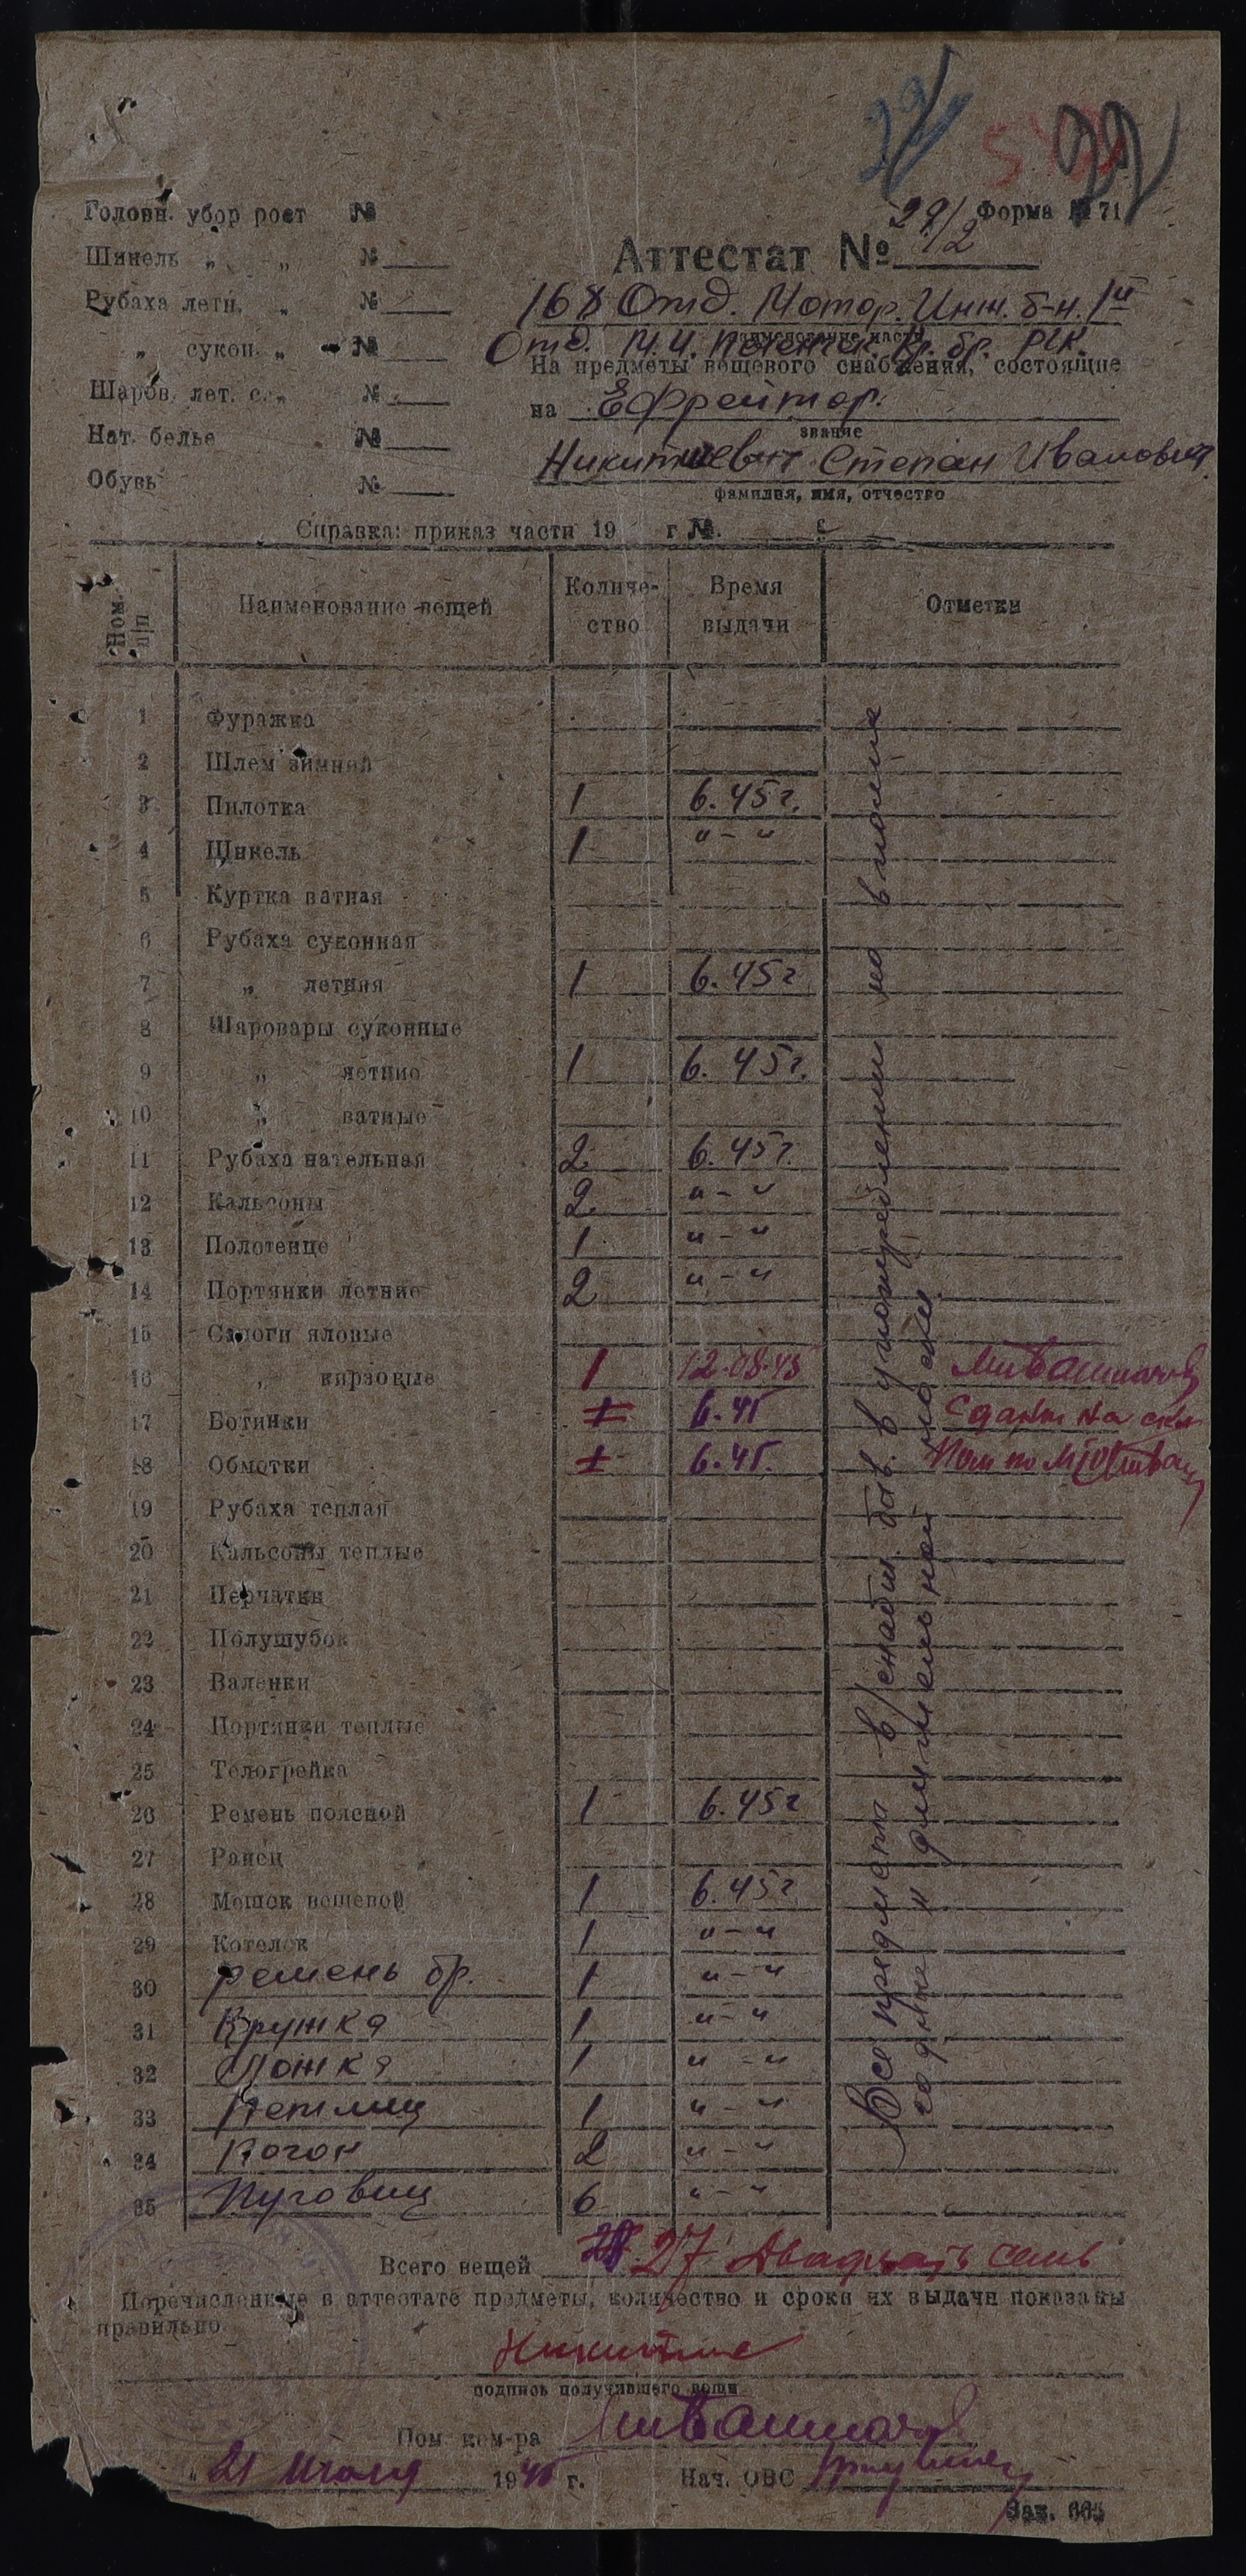 22
22
Форма № 71
Аттестат № 29/2
Головн. убор рост №
Шинель „ „ №
Рубаха летн. „ №
„ сукон. „ №
Шаров. лет. с. „ №
Нат. белье №
Обувь №
168 Отд. Мотор. Инж. б-н. 1й
наименование части
Отд. М.И. Кр. бр. РГК.
На предметы вещевого снабжения, состоящие
на Ефрейтор.
звание
Степан Иванович
фамилия, имя, отчество
Справка: приказ части 19 г №. с
Ном. п/п Наименование вещей Количе-ство Время выдачи Отметки
1 Фуражка
2 Шлем зимний
3 Пилотка 1 6.45г.
4 Шинель 1 "-"
5 Куртка ватная
6 Рубаха суконная
7 „ летняя 1 6.45г
8 Шаровары суконные
9 „ летние 1 6.45г.
10 „ ватные
11 Рубаха нательная 2 6.45г.
12 Кальсоны 2 "-"
13 Полотенце 1 "-"
14 Портянки летние 2 "-"
15 Сапоги яловые
16 „ кирзовые 1 12.08.45
17 Ботинки 1 6.45 Сданы на скл
18 Обмотки 1 6.45. Пом по МТО
19 Рубаха теплая
20 Кальсоны теплые
21 Перчатки
22 Полушубок
23 Валенки
24 Портянки теплые
25 Телогрейка
26 Ремень поясной 1 6.45г
27 Ранец
28 Мешок вещевой 1 6.45г
29 Котелок 1 "-"
30 ремень бр. 1 "-"
31 Кружка 1 "-"
32 Ложка 1 "-"
33 Петлиц 1 "-"
34 Погон 2 "-"
35 Пуговиц 6 "-"
Все предметы в/снабж. быв. в употреблении но вполне
годные к длительной носки.
Всего вещей 28 27 Двадцать семь
Перечисленные в аттестате предметы, количество и сроки их выдачи показаны
правильно
подпись получившего вещи
Пом. ком-ра
„ 21 Июля 1945 г. Нач. ОВС
Зак. 665